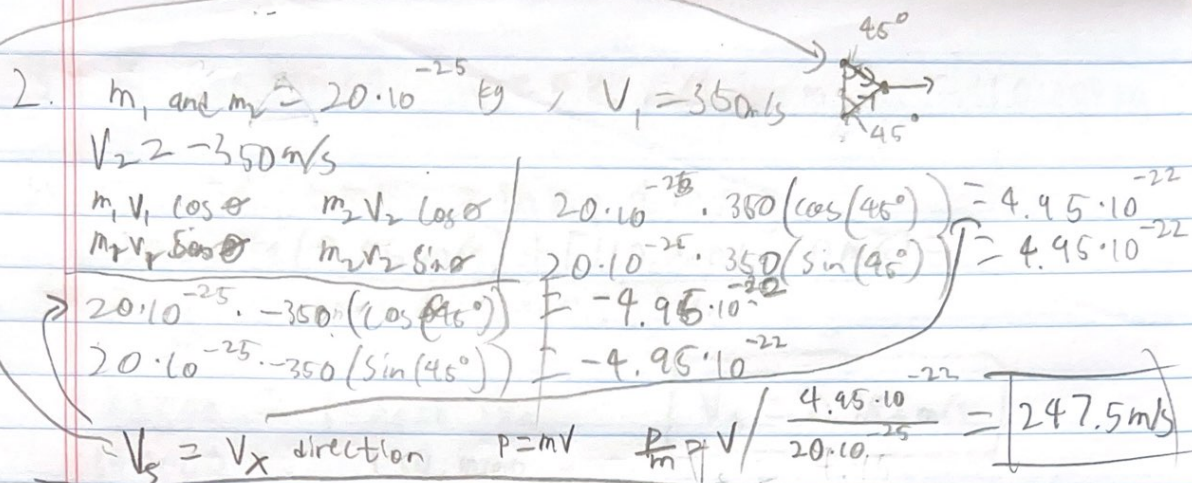 45°
2. m₁ and m₂ = 20·10⁻²⁵ kg, V₁ = 350m/s
45°
V₂ = -350m/s
m₁V₁ cosθ m₂V₂ cosθ | 20·10⁻²⁵ · 350(cos(45°)) = 4.95·10⁻²²
sinθ m₂V₂ sinθ | 20·10⁻²⁵ · 350(sin(45°)) = 4.95·10⁻²²
20·10⁻²⁵ · -350(cos(45°)) = -4.95·10⁻²²
20·10⁻²⁵ · -350(sin(45°)) = -4.95·10⁻²²
= Vₓ direction P=mV P/m = V / 4.95·10⁻²² / 20·10⁻²⁵ = 247.5m/s